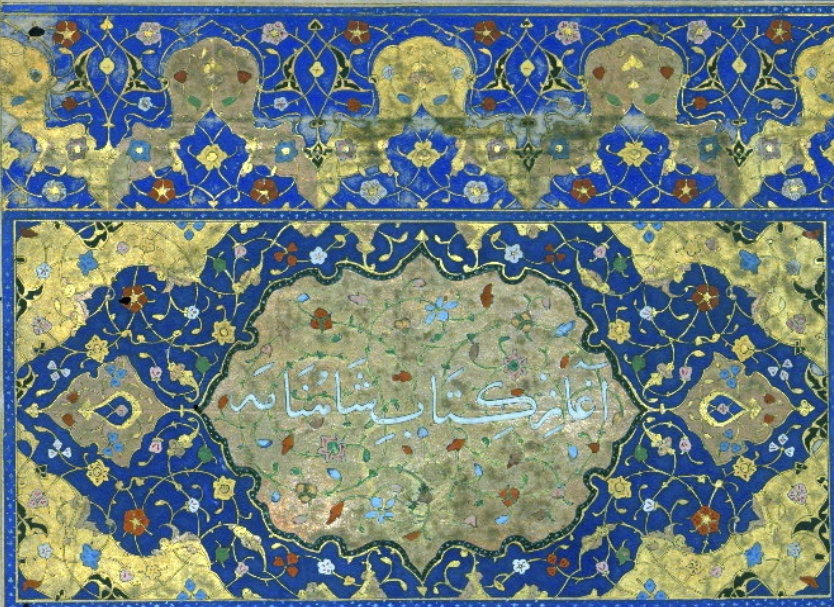 آغَازِ کِتَابِ شَاهْنَامَه